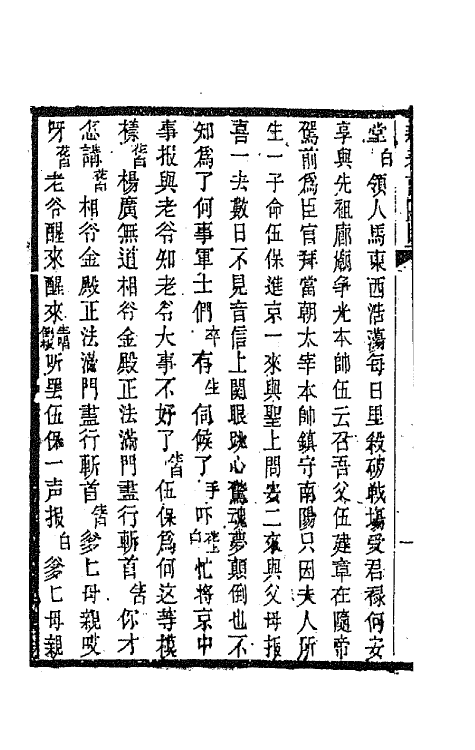 堂白領人馬東西浩蕩每日里殺破戰塲受君禄何安
享與先祖廊廟争光本帥伍云召吾父伍建章在隨帝
駕前爲臣官拜當朝太宰本帥鎮守南陽只因夫人所
生一子命伍保進京一來與聖上問安二來與父母报
喜一去數日不見音信上関眼跳心驚魂夢顛倒也不
知爲了何事軍士們卒有生伺候了手吓白忙将京中
事报與老爷知老爷大事不好了偺伍保爲何这等模
樣偺楊廣無道相爷金殿正法滿門盡行斬首偺你才
怎講偺相爷金殿正法滿門盡行斬首偺爹匕母親哎
呀偺老爷醒來醒來偺听罢伍保一声报白爹匕母親